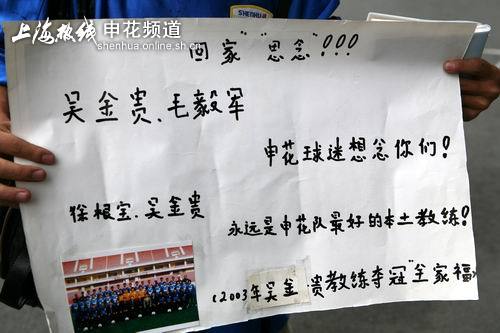 上海热线 申花频道
shenhua.online.sh.cn
SHENHUA
回家"思念"!!!
吴金贵、毛毅军
申花球迷想念你们!
徐根宝、吴金贵
永远是申花队最好的本土教练!
(2003年吴金贵教练夺冠"全家福")